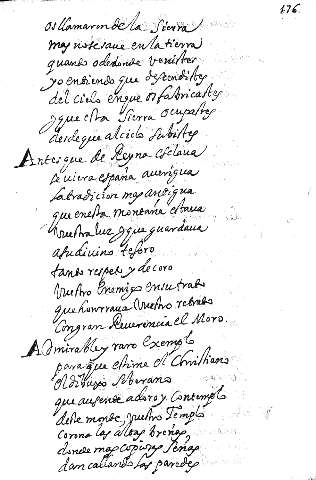 176.
os llamaron de la Sierra
mas no se saue en la tierra
quando o de donde venistes
yo entiendo que descendistes
del cielo en que os fabricastes
y que esta Sierra ocupastes
desde que al cielo subistes
Antes que de Reyna esclaua
se viera españa aueriqua
la tradicion mas antigua
que en esta montaña estaua
vuestra luz, y que guardaua
a su diuino tesoro
tanto respeto y decoro
vuestro Enemigo en su trato
que honrraua vuestro retrato
con gran Reuerencia el Moro.
Admirable y raro Exemplo
para que estime el Christiano
el dibuxo soberano
que ausente adoro y contemplo
deste monte, vuestro Templo
corona las altas breñas
donde mas copiosas señas
dan callando las paredes